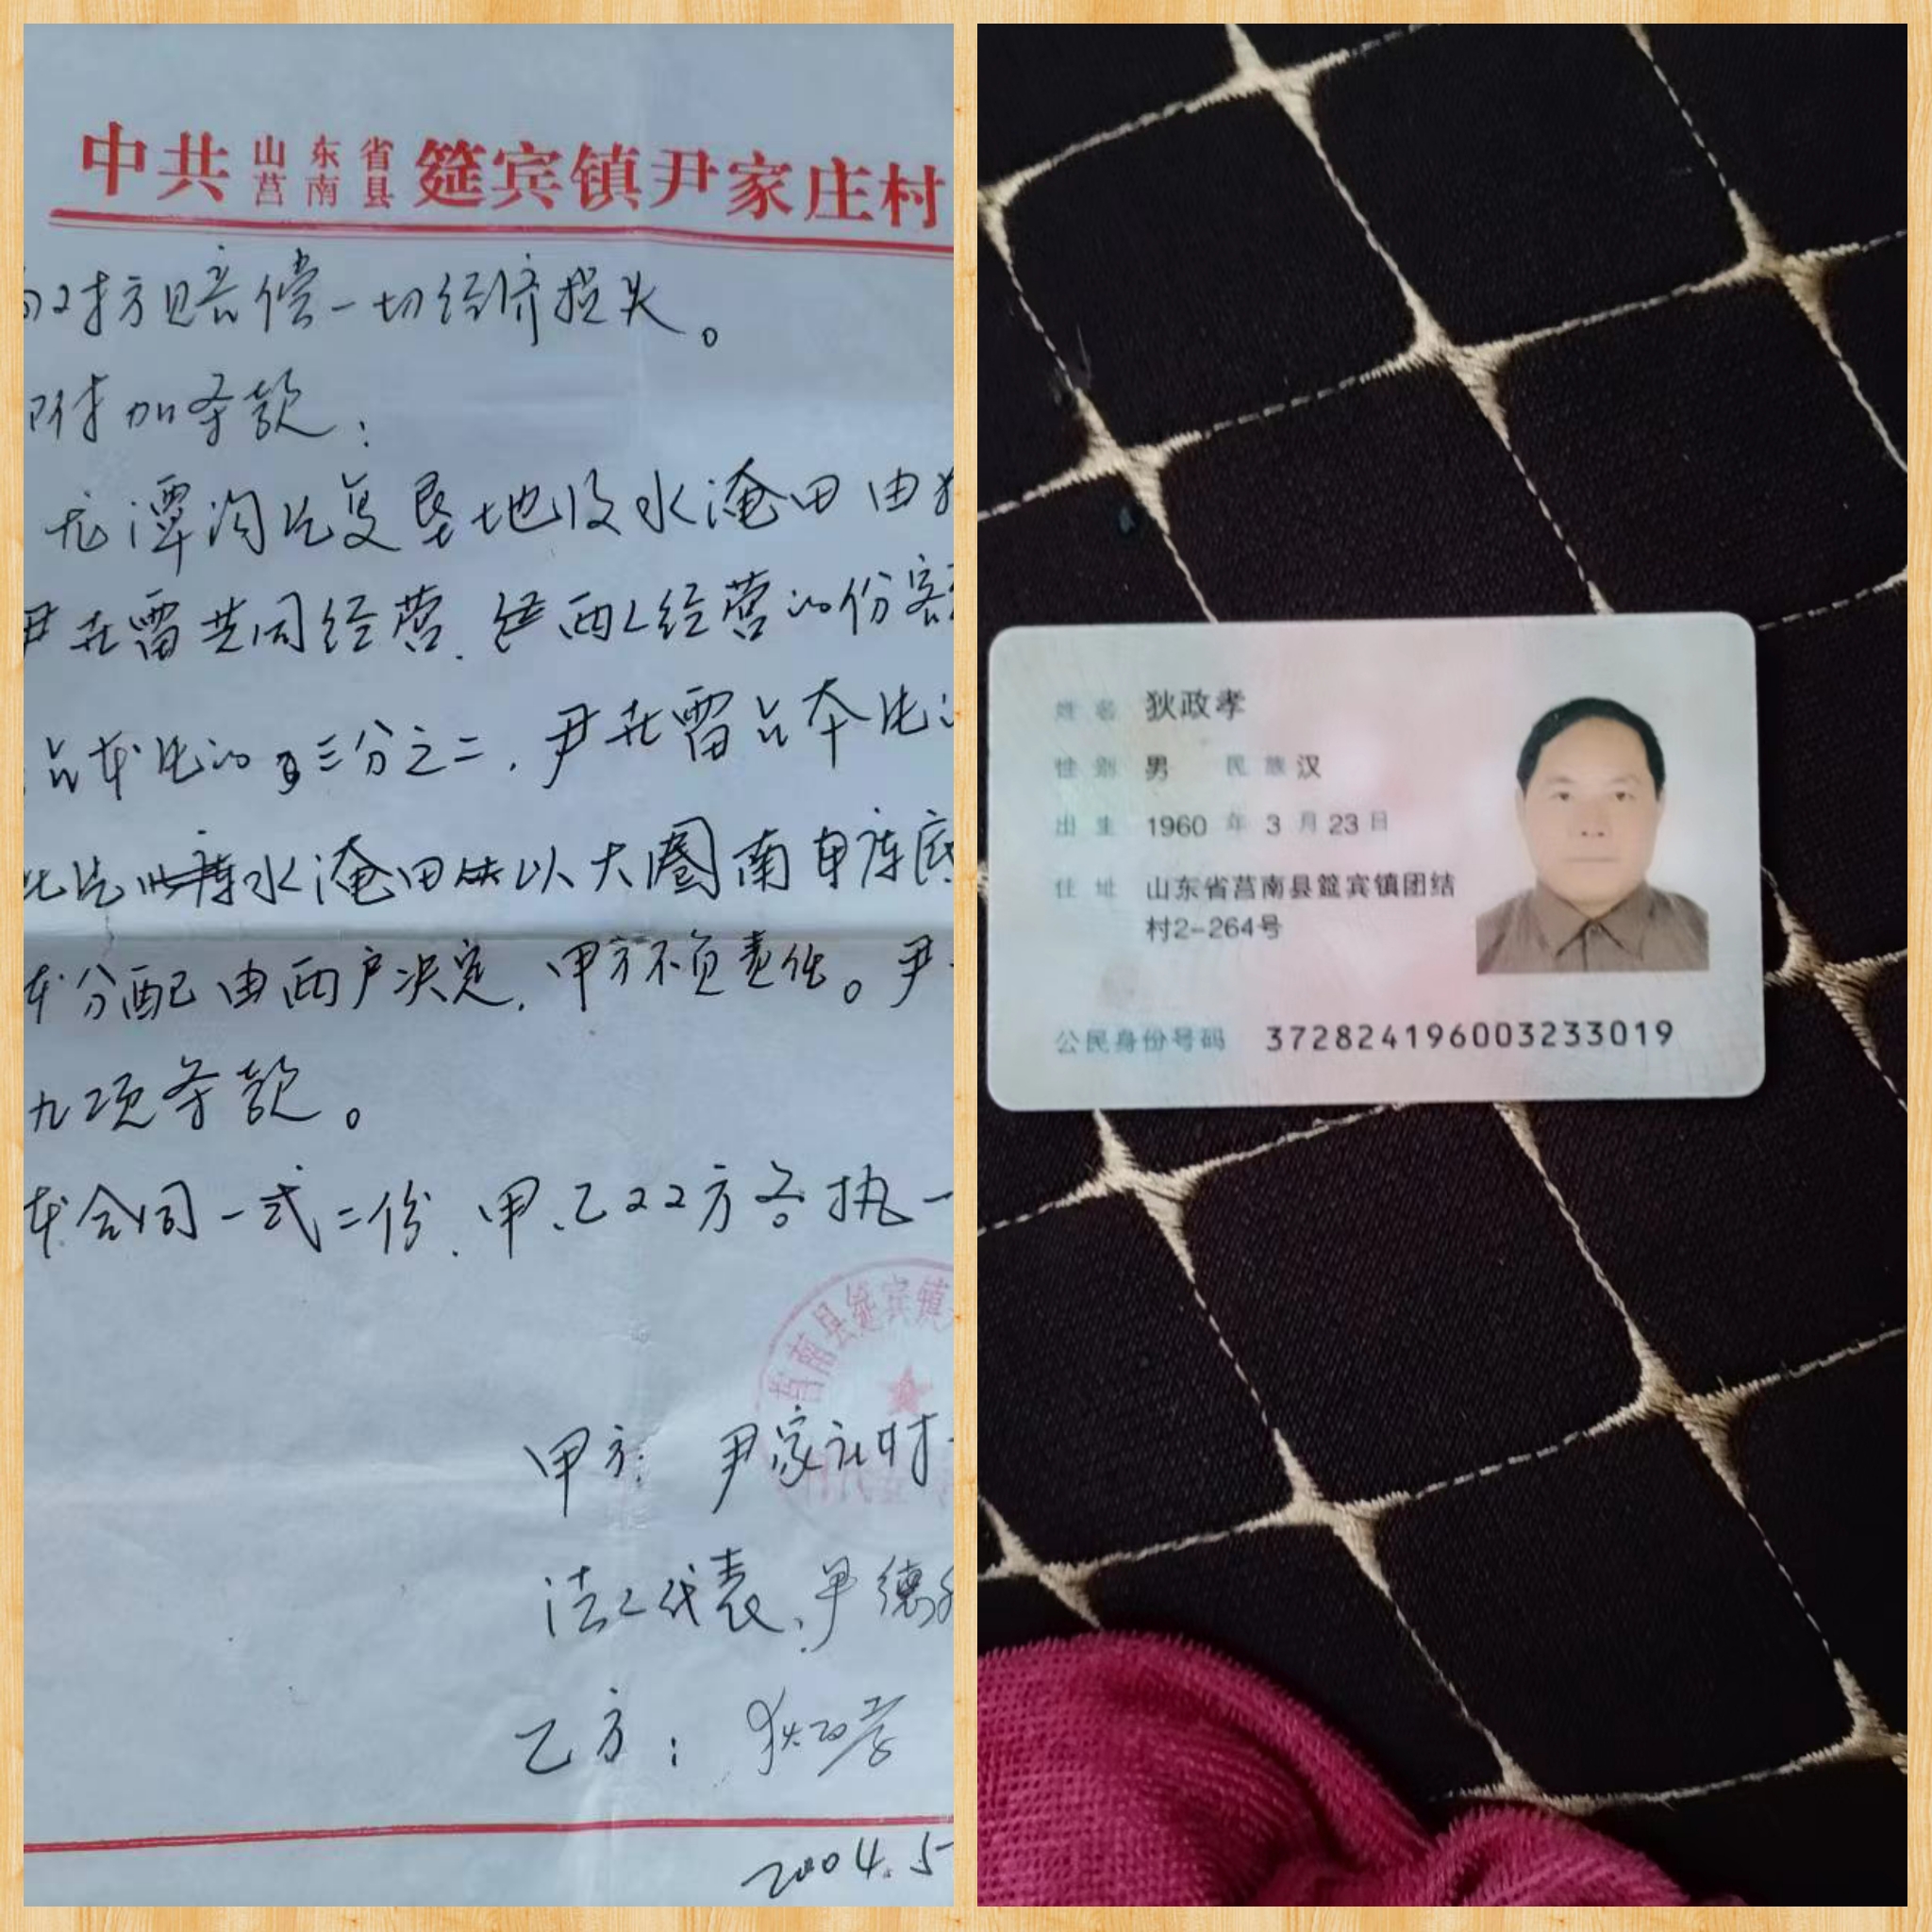 中共 山东省莒南县 筵宾镇尹家庄村
对方赔偿一切经济损失。
附加条款：
龙潭沟片复垦地及水淹田由
尹在雷共同经营.经两人经营的份额
占本片的三分之二.尹在雷占本片
此片水淹田以大圈南
本分配由两户决定.甲方不负责任。尹
九项条款。
本合同一式二份.甲、乙双方各执一
莒南县筵宾镇
甲方：尹家庄村
法人代表、尹德
乙方：狄政孝
2004.5
姓名 狄政孝
性别 男 民族 汉
出生 1960年3月23日
住址 山东省莒南县筵宾镇团结
村2-264号
公民身份号码 372824196003233019